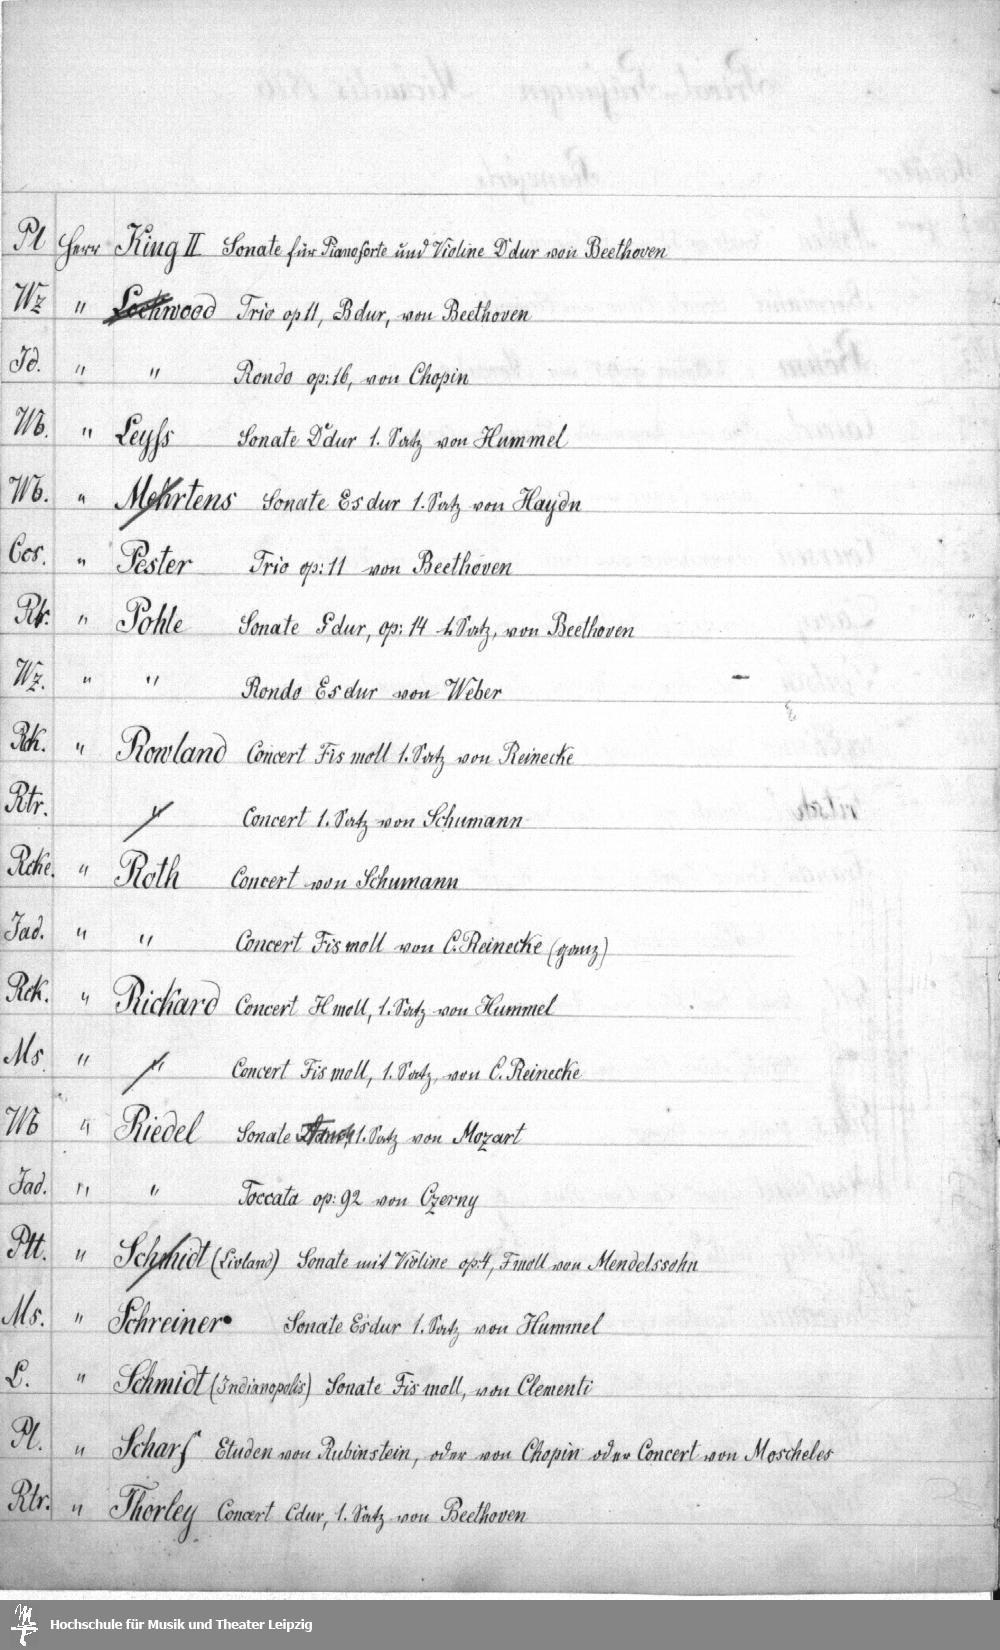 Pl Herr King II Sonate für Pianoforte und Violine Ddur von Beethoven
Wz " Lockwood Trio op 11, Bdur, von Beethoven
Jd. " " Rondo op: 16, von Chopin
Wb. " Leyss Sonate Ddur 1. Satz von Hummel
Wb. " Mehrtens Sonate Esdur 1. Satz von Haydn
Ccs. " Pester Trio op: 11 von Beethoven
Rk. " Pohle Sonate Gdur, op: 14 1. Satz, von Beethoven
Wz. " " Rondo Esdur von Weber
Rck. " Rowland Concert Fis moll 1. Satz von Reinecke
Rtr. " Concert 1. Satz von Schumann
Rcke. " Roth Concert von Schumann
Jad. " " Concert Fis moll von C. Reinecke (ganz)
Rck. " Rickard Concert H moll, 1. Satz von Hummel
Ms. " " Concert Fis moll, 1. Satz, von C. Reinecke
Wb " Riedel Sonate 1. Satz von Mozart
Jad. " " Toccata op: 92 von Czerny
Ptt. " Schmidt (Livland) Sonate mit Violine op: 4, Fmoll von Mendelssohn
Ms. " Schreiner Sonate Esdur 1. Satz von Hummel
L. " Schmidt (Indianopolis) Sonate Fis moll, von Clementi
Pl. " Scharf Etuden von Rubinstein, oder von Chopin oder Concert von Moscheles
Rtr. " Thorley Concert Cdur, 1. Satz von Beethoven
Hochschule für Musik und Theater Leipzig